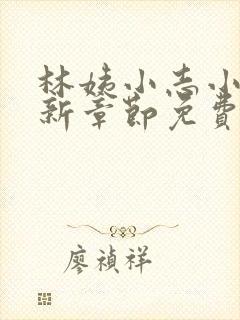 林姨小志小
新章節免費
廖禎祥